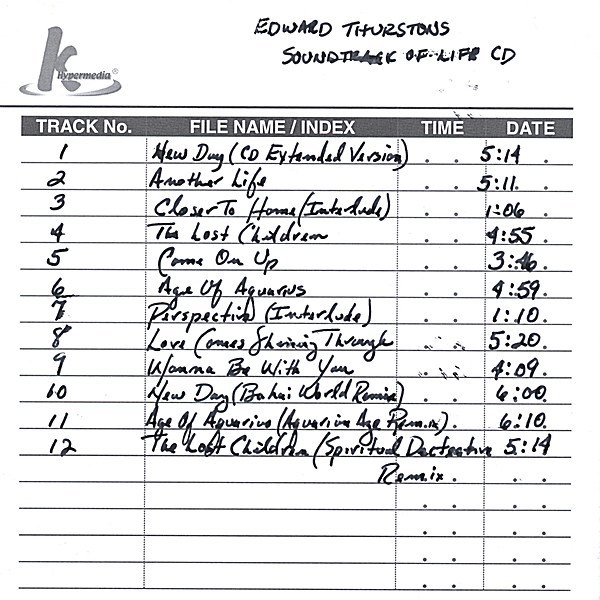 EDWARD THURSTONS
SOUNDTRACK OF LIFE CD
K Hypermedia®
TRACK No. FILE NAME / INDEX TIME DATE
1 New Day (CD Extended Version) 5:14
2 Another Life 5:11
3 Closer To Home (Interlude) 1:06
4 The Lost Children 4:55
5 Come On Up 3:46
6 Age Of Aquarius 4:59
7 Perspective (Interlude) 1:10
8 Love Comes Shining Through 5:20
9 Wanna Be With You 4:09
10 New Day (Bahai World Remix) 6:00
11 Age Of Aquarius (Aquarian Age Remix) 6:10
12 The Lost Children (Spiritual Dectective 5:14
Remix